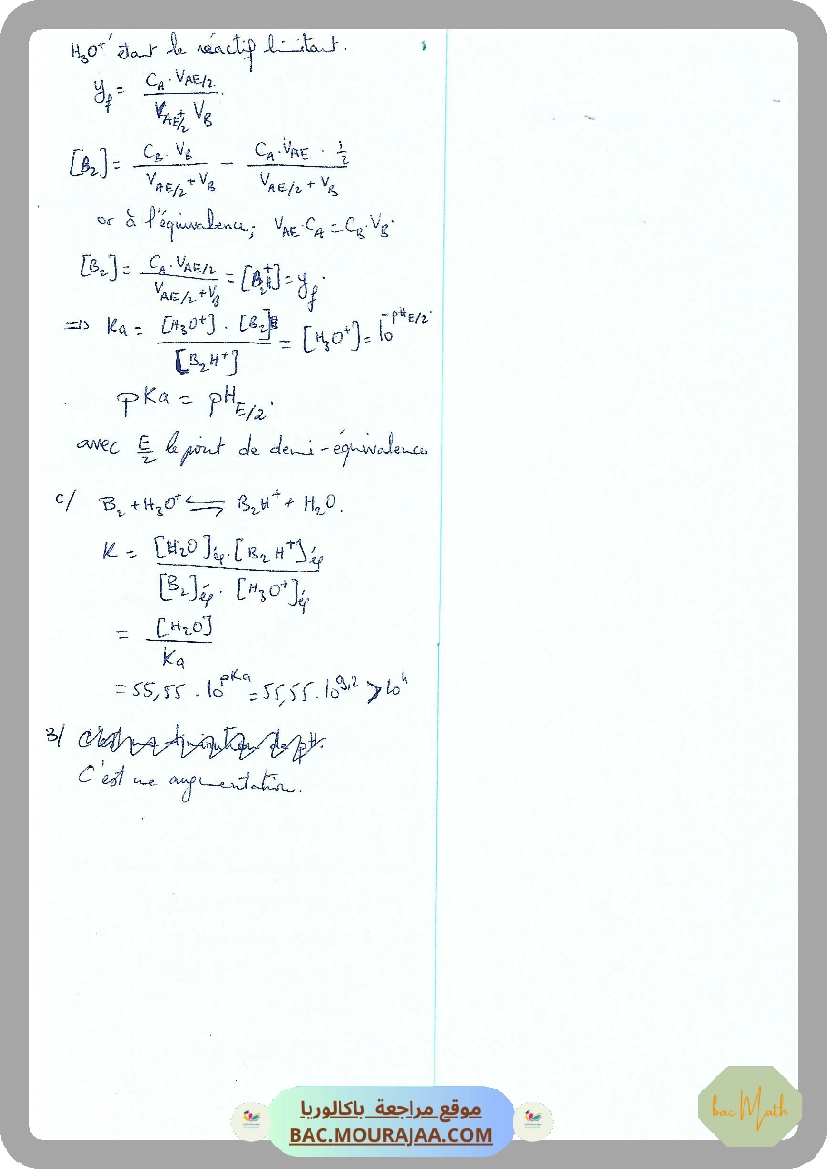 H₃O⁺ étant le réactif limitant.
y_f = (C_A · V_AE/2) / (V_AE/2 + V_B)
[B₂] = (C_B · V_B) / (V_AE/2 + V_B) − (C_A · V_AE · 1/2) / (V_AE/2 + V_B)
or à l'équivalence, V_AE · C_A = C_B · V_B.
[B₂] = (C_A · V_AE/2) / (V_AE/2 + V_B) = [B₂H⁺] = y_f.
⇒ Ka = ([H₃O⁺] · [B₂]) / [B₂H⁺] = [H₃O⁺] = 10^(-pH_E/2)
pKa = pH_E/2.
avec E/2 le point de demi-équivalence
c/ B₂ + H₃O⁺ ⇌ B₂H⁺ + H₂O.
K = ([H₂O]éq · [B₂H⁺]éq) / ([B₂]éq · [H₃O⁺]éq)
= [H₂O] / Ka
= 55,55 · 10^(pKa) = 55,55 · 10^(9,2) > 10⁴
3/
C'est une augmentation.
موقع مراجعة باكالوريا
BAC.MOURAJAA.COM
bac Math